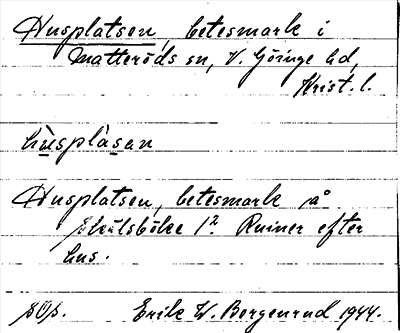 Husplatsen, betesmark i
Matteröds sn, V. Göinge hd,
Krist. l.
hùsplàsan
Husplatsen, betesmark å
Skälsböke 1². Ruiner efter
hus.
Erik W. Bergenrud 1944.